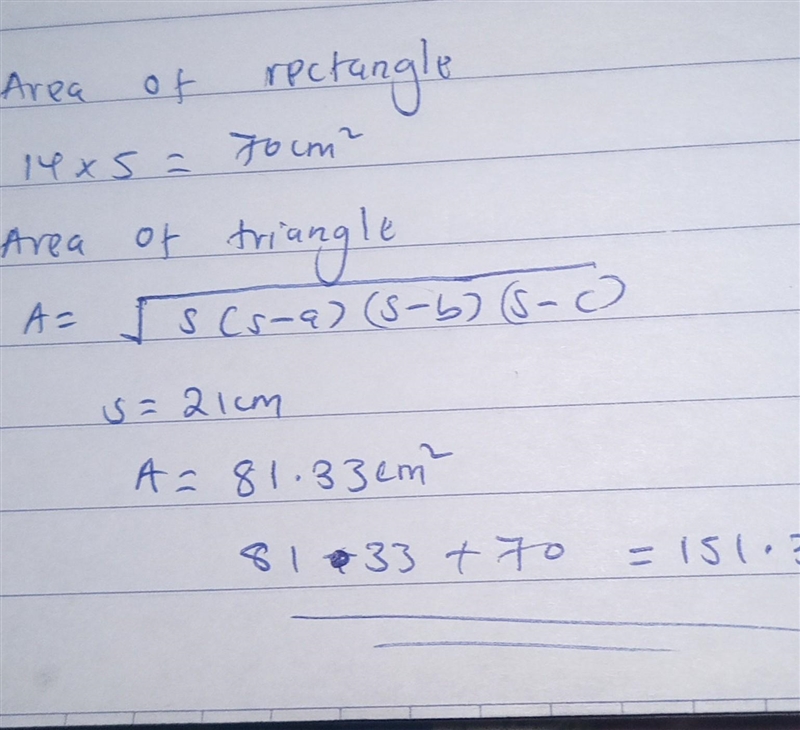 Area of rectangle
14 x 5 = 70cm²
Area of triangle
A = √s(s-a)(s-b)(s-c)
s = 21cm
A = 81.33cm²
81.33 + 70 = 151.3